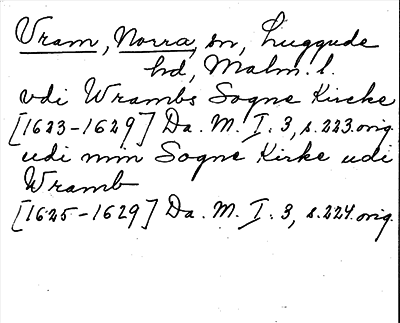 Vram, Norra, sn, Luggude
hd, Malm. l.
vdi Wrambs Sogne Kircke
[1623-1629] Da. M. I. 3, s. 223. orig.
udi min Sogne Kirke udi
Wramb
[1625-1629] Da. M. I. 3, s. 224. orig.